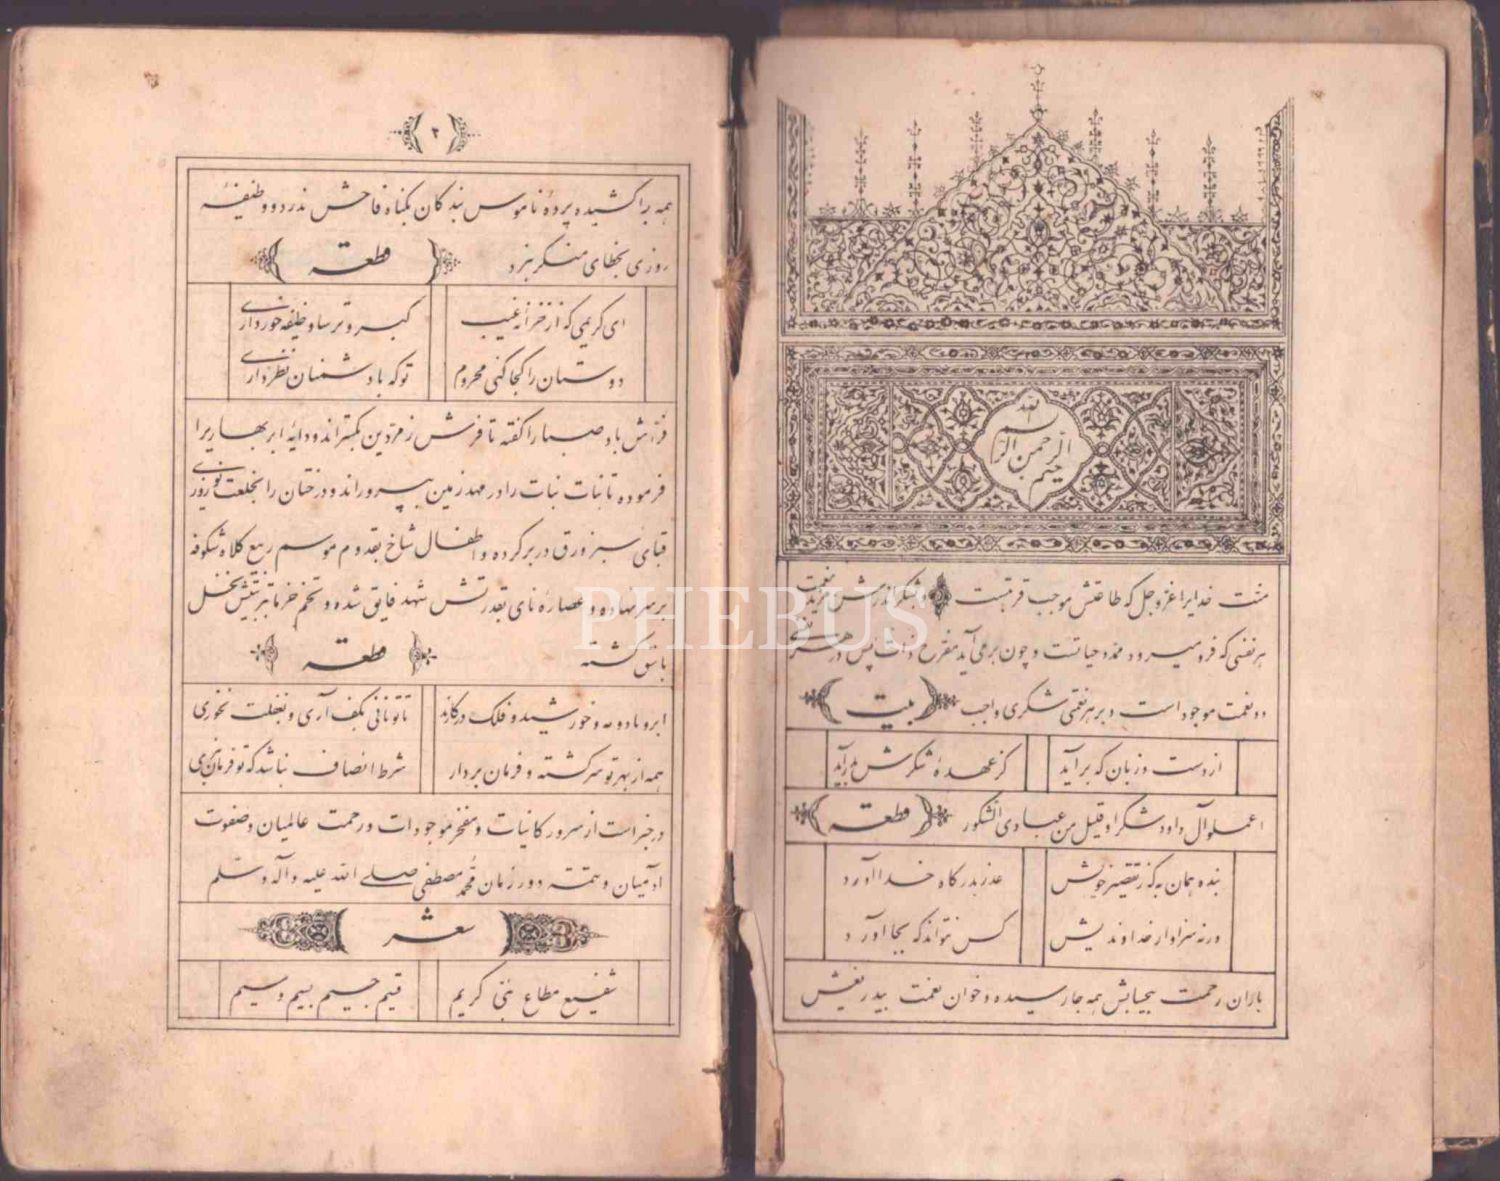 بسم الله
الرحمن الرحیم
منت خدایرا عزوجل که طاعتش موجب قربتست و بشکر اندرش مزید نعمت
هر نفسی که فرو میرود ممد حیاتست و چون بر می آید مفرح ذات پس در هر نفسی
دو نعمت موجود است و بر هر نعمتی شکری واجب بیت
از دست و زبان که برآید کز عهدهٔ شکرش بدرآید
اعملوا آل داود شکرا و قلیل من عبادی الشکور قطعه
بنده همان به که ز تقصیر خویش عذر بدرگاه خدا آورد
ورنه سزاوار خداوندیش کس نتواند که بجا آورد
باران رحمت بیحسابش همه جا رسیده و خوان نعمت بیدریغش
۲
همه را کشیده پردهٔ ناموس بندگان بگناه فاحش ندرد و وظیفهٔ
روزی بخطای منکر نبرد قطعه
ای کریمی که از خزانه غیب گبر و ترسا وظیفه خورداری
دوستان را کجا کنی محروم تو که با دشمنان نظر داری
فراش باد صبا را گفته تا فرش زمردین بگستراند و دایهٔ ابر بهاریرا
فرموده تا بنات نبات را در مهد زمین بپروراند و درختان را بخلعت نوروزی
قبای سبز ورق در بر کرده و اطفال شاخ بقدوم موسم ربیع کلاه شکوفه
بر سر نهاده و عصارهٔ نای بقدرتش شهد فایق شده و تخم خرما بتربیتش نخل
باسق گشته قطعه
ابر و باد و مه و خورشید و فلک در کارند تا تو نانی بکف آری و بغفلت نخوری
همه از بهر تو سرگشته و فرمان بردار شرط انصاف نباشد که تو فرمان نبری
در خبر است از سرور کاینات و مفخر موجودات و رحمت عالمیان و صفوت
آدمیان و تتمه دور زمان محمد مصطفی صلی الله علیه و آله و سلم
شعر
شفیع مطاع نبی کریم قسیم جسیم بسیم وسیم
PHEBUS